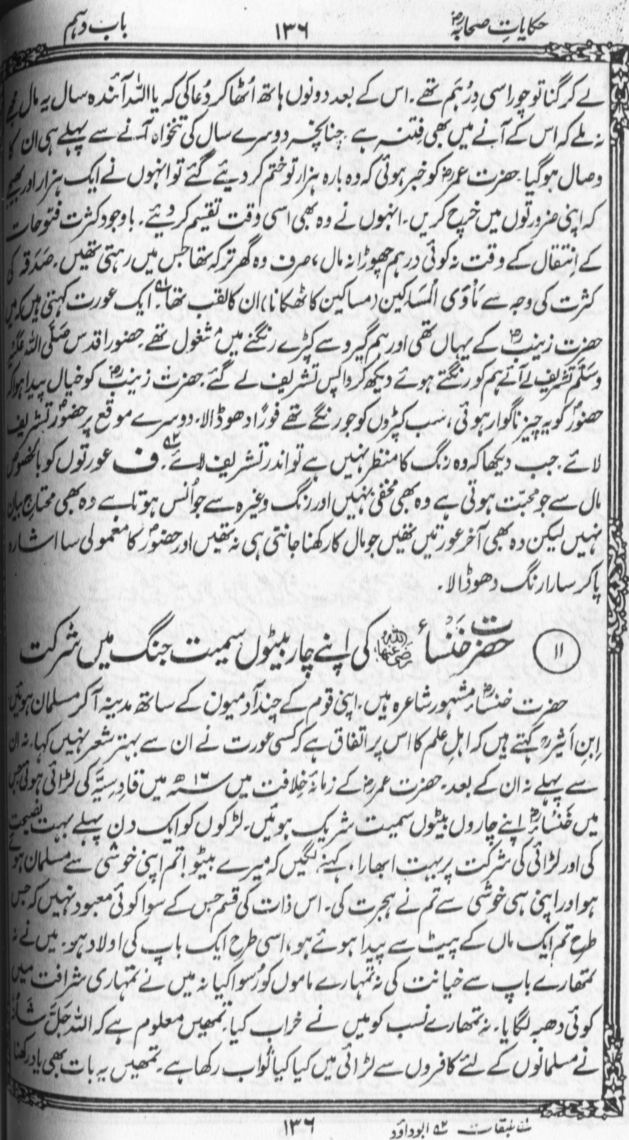 حکایاتِ صحابہؓ ۱۳۶ باب دہم
لے کر گنا تو چوراسی درہم تھے۔ اس کے بعد دونوں ہاتھ اٹھا کر دعا کی کہ یا اللہ آئندہ سال یہ مال مجھے
نہ ملے کہ اس کے آنے میں بھی فتنہ ہے چنانچہ دوسرے سال کی تنخواہ آنے سے پہلے ہی ان کا
وصال ہو گیا۔ حضرت عمرؓ کو خبر ہوئی کہ وہ بارہ ہزار تو ختم کر دیئے گئے تو انہوں نے ایک ہزار اور بھیجے
کہ اپنی ضرورتوں میں خرچ کریں۔ انہوں نے وہ بھی اسی وقت تقسیم کر دیئے۔ باوجود کثرت فتوحات
کے انتقال کے وقت نہ کوئی درہم چھوڑا نہ مال، صرف وہ گھر ترکہ تھا جس میں رہتی تھیں۔ صدقہ کی
کثرت کی وجہ سے مَأوَی الْمَسَاکین (مساکین کا ٹھکانا) ان کا لقب تھا۔ ایک عورت کہتی ہیں کہ میں
حضرت زینبؓ کے یہاں تھی اور ہم گیرو سے کپڑے رنگنے میں مشغول تھے۔ حضور اقدس صَلَّی اللہ عَلَیْہِ
وَسَلَّمَ تشریف لے آئے ہم کو رنگتے ہوئے دیکھ کر واپس تشریف لے گئے۔ حضرت زینبؓ کو خیال پیدا ہوا کہ
حضورؐ کو یہ چیز ناگوار ہوئی، سب کپڑوں کو جو رنگے تھے فوراً دھو ڈالا۔ دوسرے موقع پر حضورؐ تشریف
لائے۔ جب دیکھا کہ وہ رنگ کا منظر نہیں ہے تو اندر تشریف لائے۔ ف عورتوں کو بالخصوص
مال سے جو محبت ہوتی ہے وہ بھی مخفی نہیں اور رنگ وغیرہ سے جو اُنس ہوتا ہے وہ بھی محتاجِ بیان
نہیں لیکن وہ بھی آخر عورتیں تھیں جو مال کا رکھنا جانتی ہی نہ تھیں اور حضورؐ کا معمولی سا اشارہ
پا کر سارا رنگ دھو ڈالا۔
۱۱ حضرت خَنْسَاءؓ کی اپنے چار بیٹوں سمیت جنگ میں شرکت
حضرت خنساءؓ مشہور شاعرہ ہیں۔ اپنی قوم کے چند آدمیوں کے ساتھ مدینہ آکر مسلمان ہوئیں
اِبنِ اَثیرؒ کہتے ہیں کہ اہلِ علم کا اس پر اتفاق ہے کہ کسی عورت نے ان سے بہتر شعر نہیں کہا۔ نہ ان
سے پہلے نہ ان کے بعد۔ حضرت عمرؓ کے زمانۂ خلافت میں ۱۶ھ میں قادسیّہ کی لڑائی ہوئی جس
میں خَنْسَاءؓ اپنے چاروں بیٹوں سمیت شریک ہوئیں۔ لڑکوں کو ایک دن پہلے بہت نصیحت
کی اور لڑائی کی شرکت پر بہت ابھارا، کہنے لگیں کہ میرے بیٹو! تم اپنی خوشی سے مسلمان ہوئے
ہو اور اپنی ہی خوشی سے تم نے ہجرت کی۔ اس ذات کی قسم جس کے سوا کوئی معبود نہیں کہ جس
طرح تم ایک ماں کے پیٹ سے پیدا ہوئے ہو، اسی طرح ایک باپ کی اولاد ہو۔ میں نے نہ
تمھارے باپ سے خیانت کی نہ تمہارے ماموں کو رُسوا کیا نہ میں نے تمہاری شرافت میں
کوئی دھبہ لگایا۔ نہ تمھارے نسب کو میں نے خراب کیا۔ تمھیں معلوم ہے کہ اللہ جَلَّ شَانُہٗ
نے مسلمانوں کے لئے کافروں سے لڑائی میں کیا کیا ثواب رکھا ہے۔ تمھیں یہ بات بھی یاد رکھنا
طبقات ابوداؤد ۱۳۶